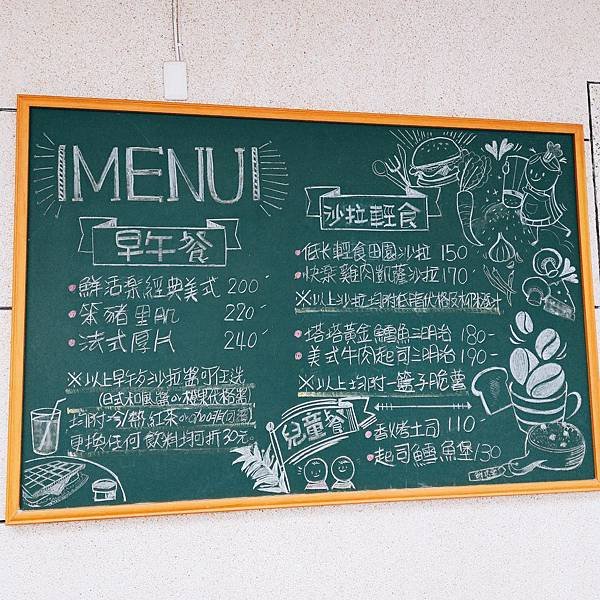 MENU
早午餐
鮮活泉經典美式 200
笨豬里肌 220
法式厚片 240
※以上早午与沙拉醬可任選
均附冷/熱紅茶
更換任何飲料均可折30元。
沙拉輕食
低卡輕食田園沙拉 150
快樂雞肉凱薩沙拉 170
※以上沙拉均附低脂优格及
塔塔黃金鱈魚三明治 180-
美式牛肉起司三明治 190-
※以上均附一籃子脆薯
兒童餐
香烤土司 110
起司鱈魚堡 130